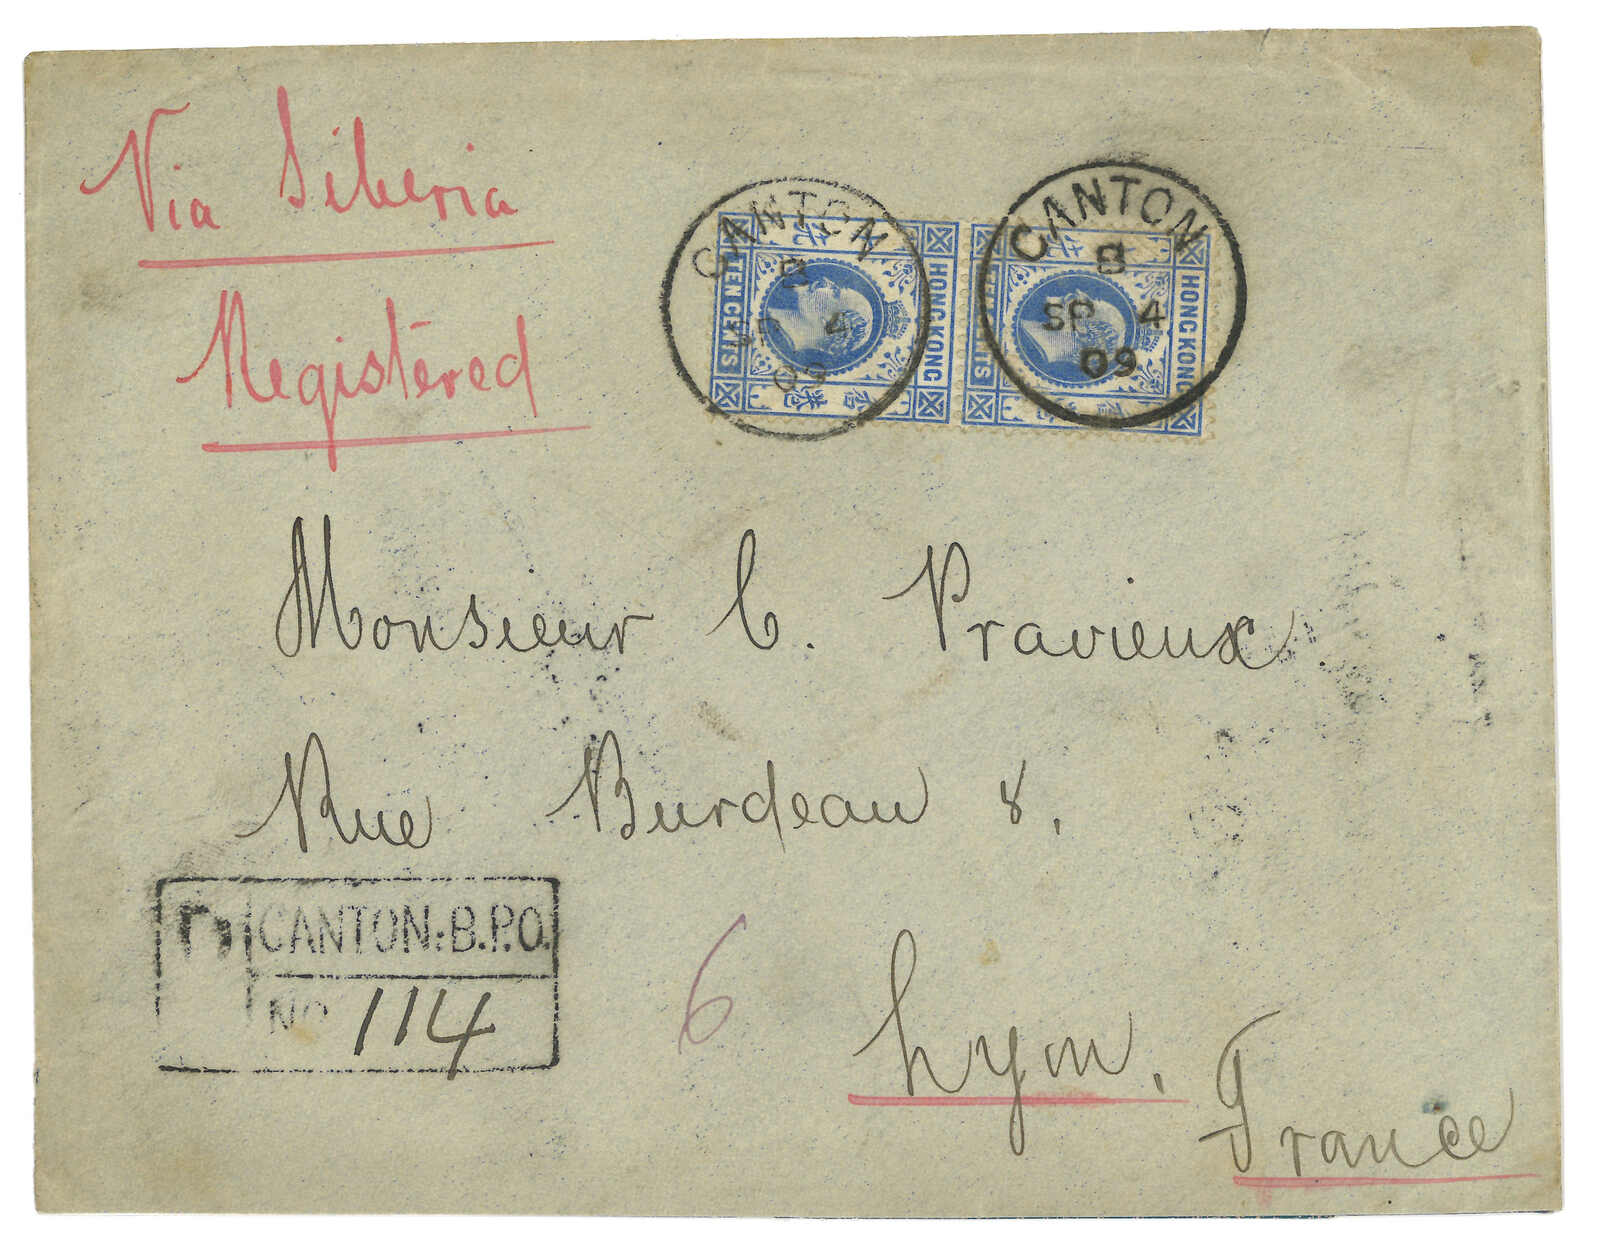 Via Siberia
Registered
CANTON
B
SP 4
09
TEN CENTS
HONG KONG
香港
CANTON
B
SP 4
09
CENTS
HONG KONG
Monsieur C. Pravieux.
Rue Burdeau 8,
R CANTON.B.P.O.
No 114
6
Lyon,
France